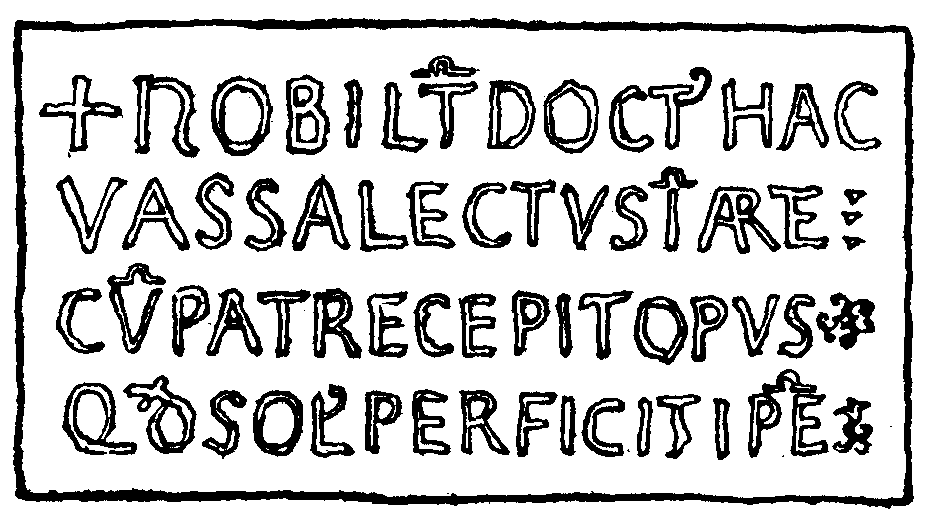 + NOBILT̄ DOCT' HAC
VASSALECTVS Ī ARTE ⋮
CV̄ PATRE CEPIT OPVS
QD̄ SOL' PERFICIT IP̄E